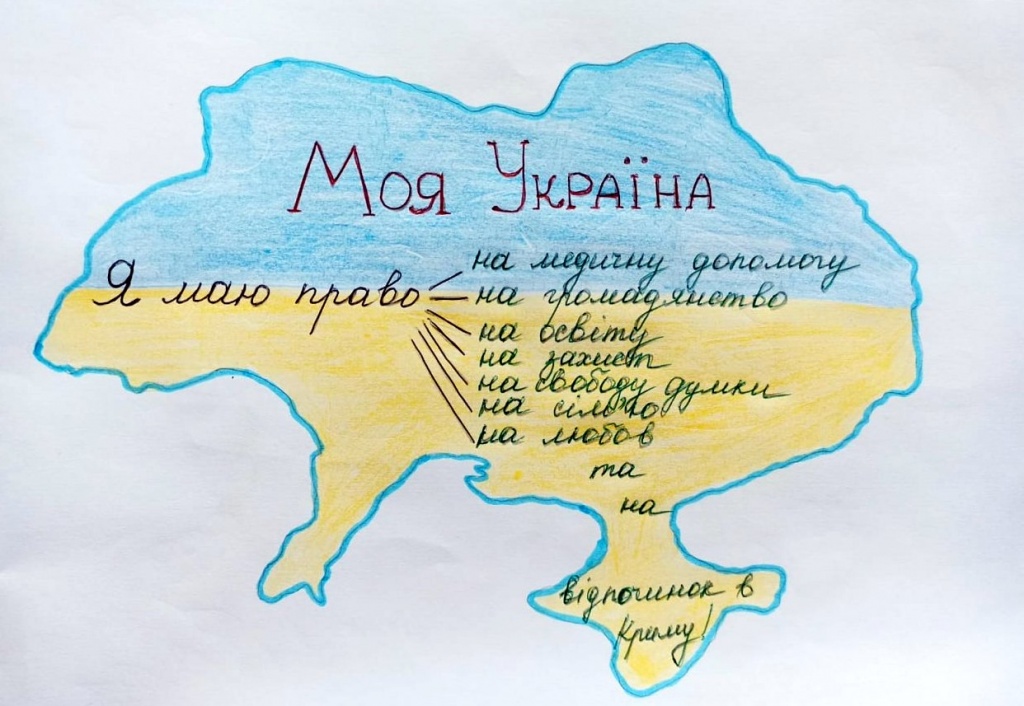 Моя Україна
Я маю право
на медичну допомогу
на громадянство
на освіту
на захист
на свободу думки
на сім'ю
на любов
та
на
відпочинок в
Криму!